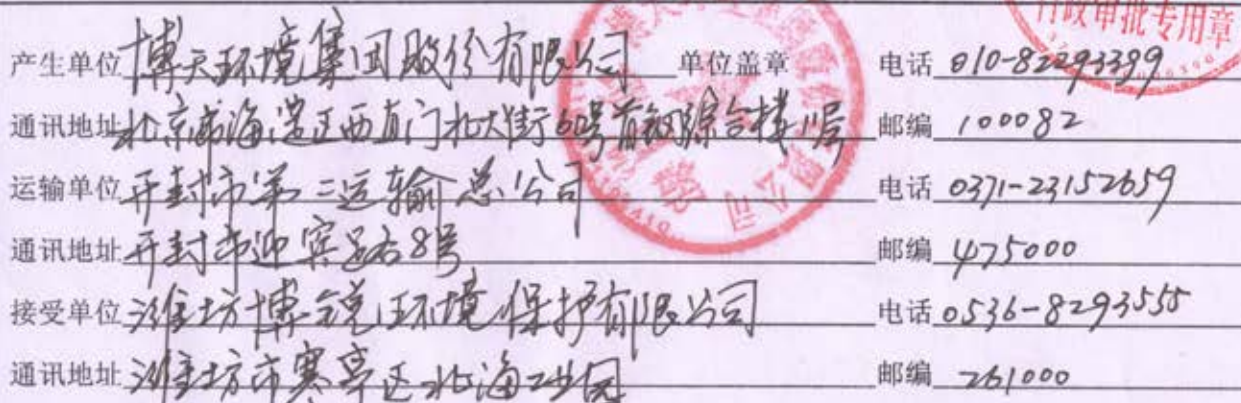 行政审批专用章
产生单位 博天环境集团股份有限公司 单位盖章 电话 010-82293399
通讯地址 北京市海淀区西直门北大街60号首钢综合楼11层 邮编 100082
运输单位 开封市第二运输总公司 电话 0371-23152659
通讯地址 开封市迎宾路8号 邮编 475000
接受单位 潍坊博锐环境保护有限公司 电话 0536-8293555
通讯地址 潍坊市寒亭区北海工业园 邮编 261000